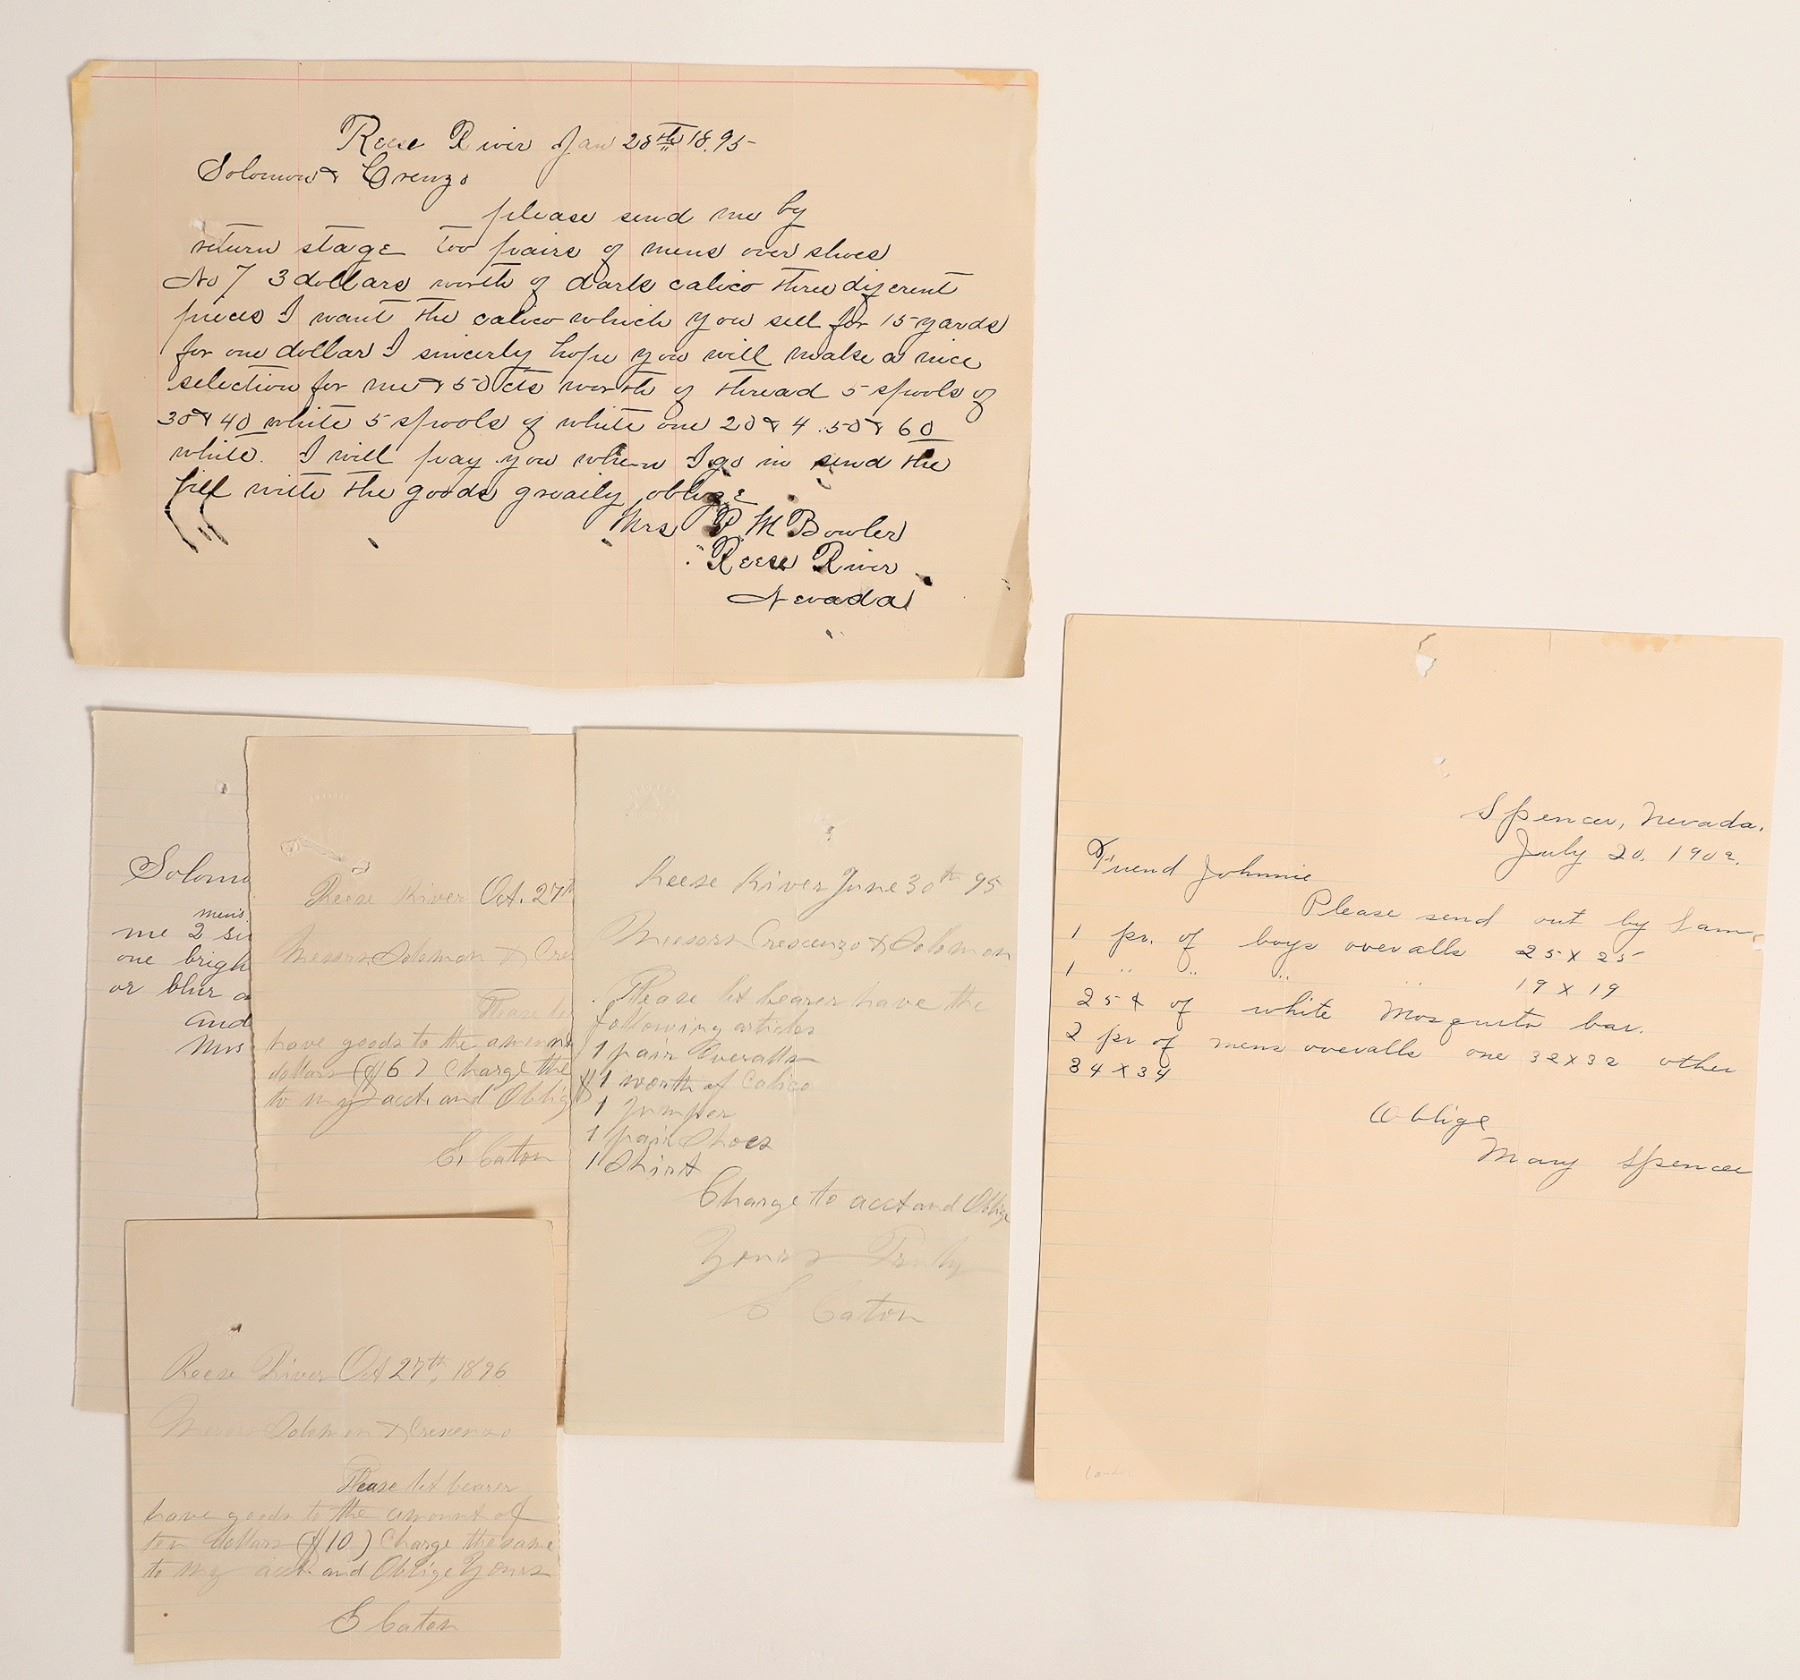 Reese River Jan 28th 18.95
Solomon & Crenzo
please send me by
return stage too pairs of mens over shoes
No 7 3 dollars worth of dark calico three diferent
pieces I want the calico which you sell for 15 yards
for one dollar I sincerly hope you will make a nice
selection for me & 50 cts worth of thread 5 spools of
30 & 40 white 5 spools of white one 20 & 4.50 & 60
white. I will pay you when I go in send the
bill with the goods greaily oblige
Mrs P. M Bowler
Reese River
Nevada
Solomo
mens
me 2 su
one brigh
or blur a
and
Mrs
Reese River Oct. 27th
Messrs Solomon & Cres
Please le
have goods to the amoun
dollars ($6) Charge the
to my acct. and Oblig
E. Caton
Reese River June 30th 95
Messrs Crescenzo & Solomon
Please let bearer have the
following articles
1 pair Overalls
$1 worth of Calico
1 Jumper
1 pair Shoes
1 Shirt
Charge to acct and Oblige
Yours Truly
E Caton
Reese River Oct 27th, 1896
Messrs Solomon & Crescenzo
Please let bearer
have goods to the amount of
ten dollars ($10) Charge the same
to my acct. and Oblige Yours
E Caton
Spencer, Nevada.
July 20, 1902.
Friend Johnnie
Please send out by Sam
1 pr. of boys overalls 25 x 25
1 " " " " 19 x 19
25¢ of white Mosquito bar.
2 pr of mens overalls one 32x32 other
34 x 34
Oblige
Mary Spencer